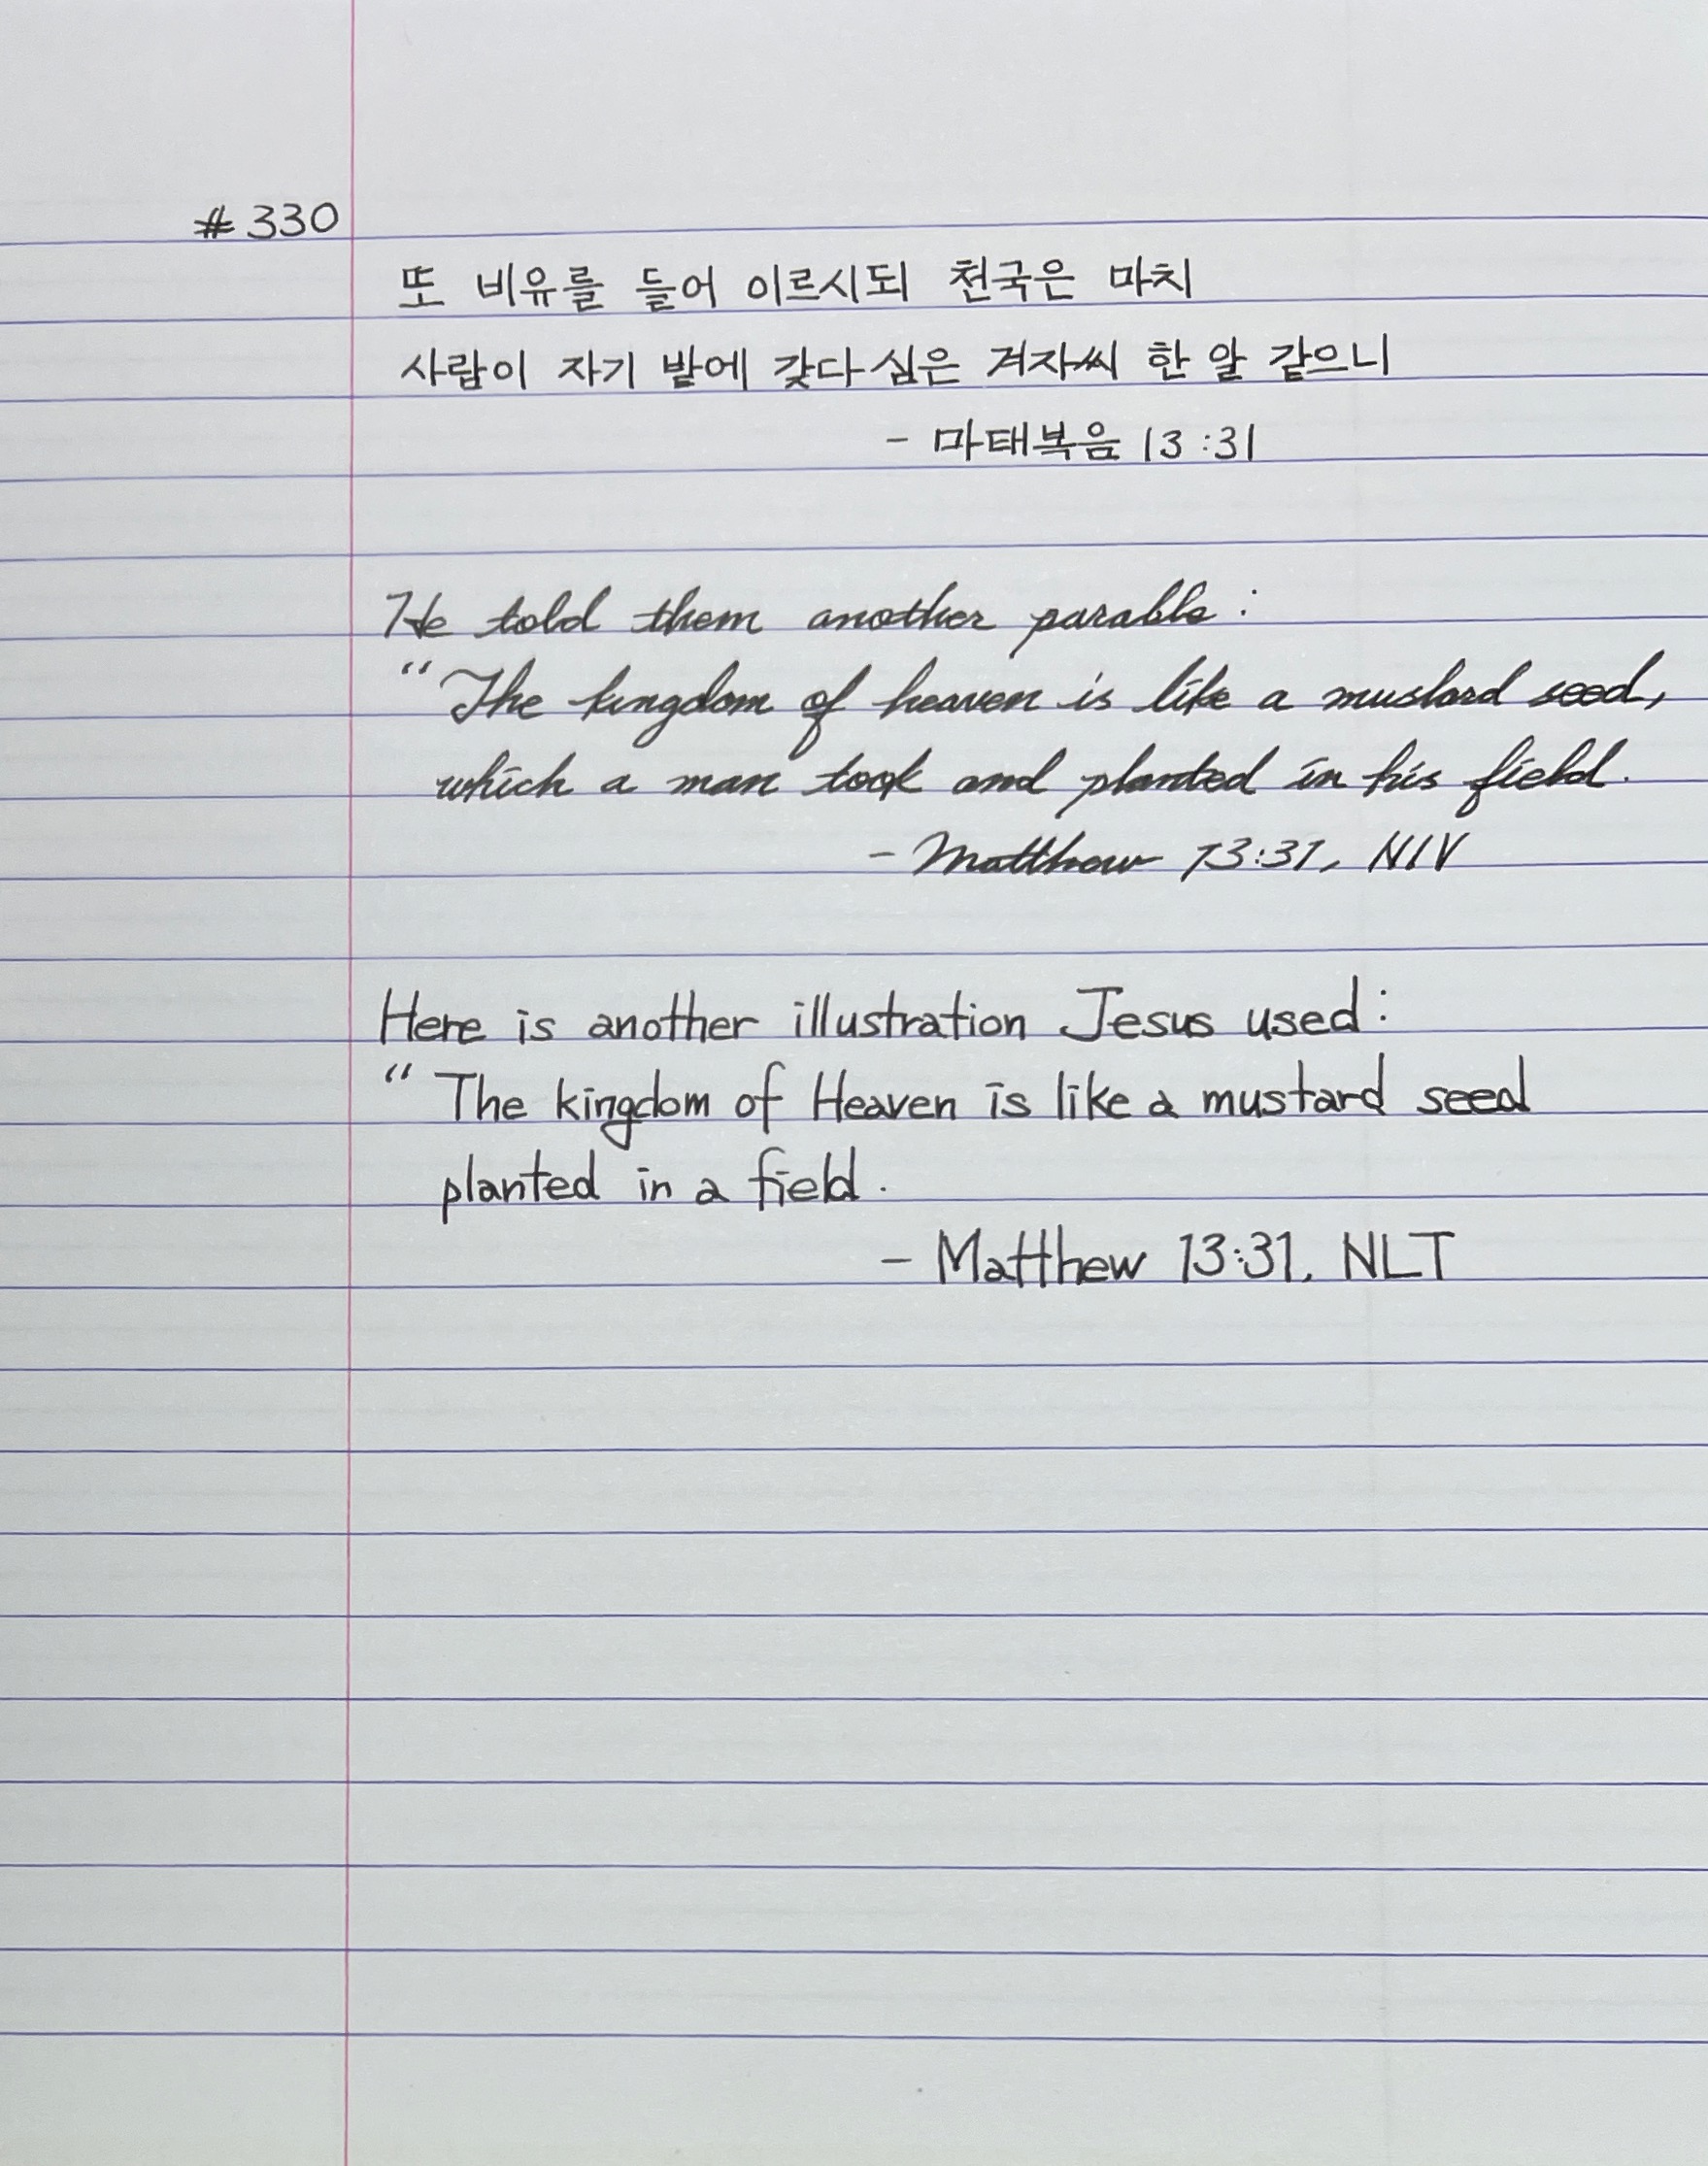 # 330
또 비유를 들어 이르시되 천국은 마치
사람이 자기 밭에 갖다 심은 겨자씨 한 알 같으니
- 마태복음 13:31
He told them another parable:
“The kingdom of heaven is like a mustard seed,
which a man took and planted in his field.
- Matthew 13:31, NIV
Here is another illustration Jesus used:
“The kingdom of Heaven is like a mustard seed
planted in a field.
- Matthew 13:31, NLT